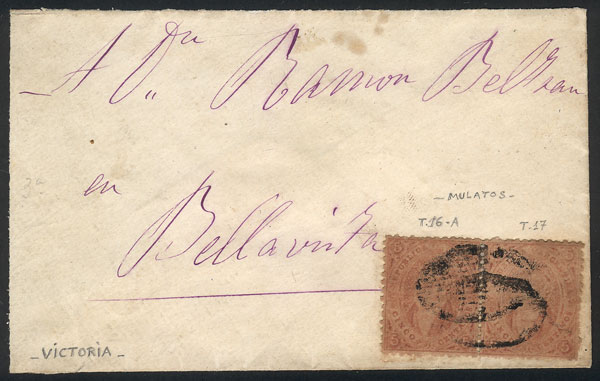 A Dn Ramon Beltran
en
Bellavista
3a
- MULATOS -
T.16-A T.17
CINCO
- VICTORIA -